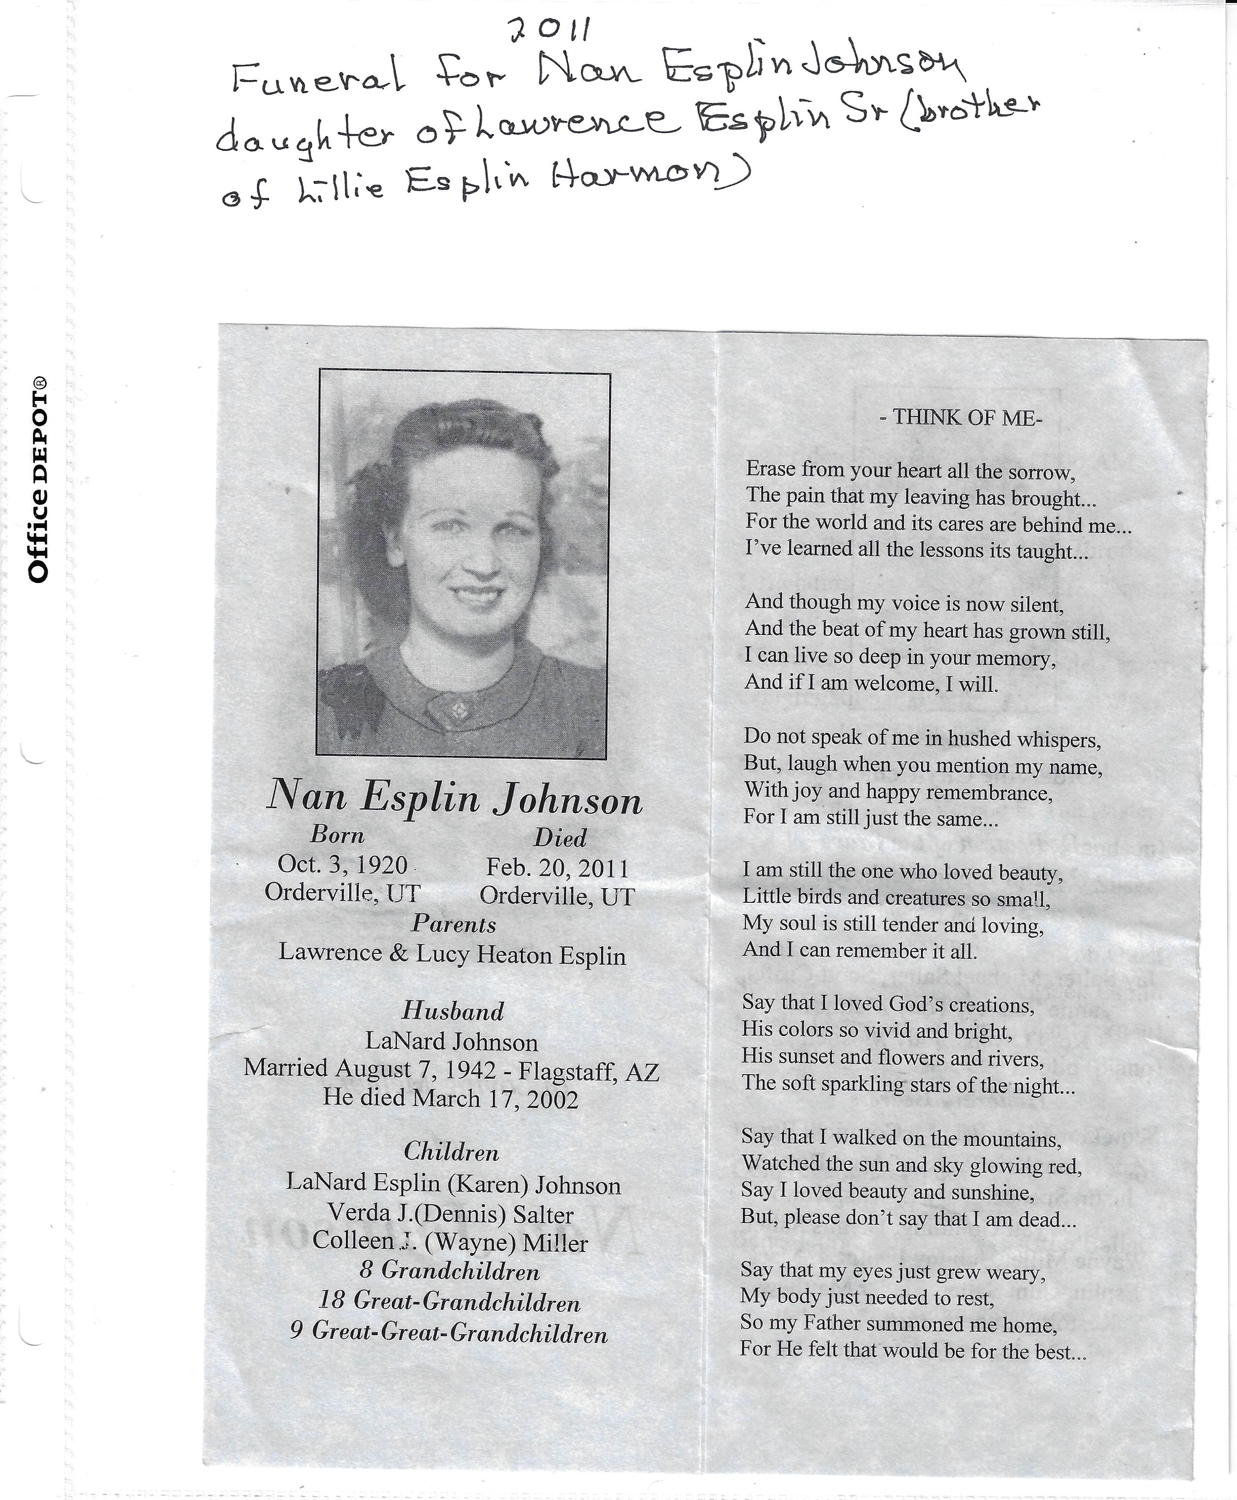 2011
Funeral for Nan Esplin Johnson
daughter of Lawrence Esplin Sr (brother
of Lillie Esplin Harmon)
Office DEPOT®
Nan Esplin Johnson
Born
Died
Oct. 3, 1920
Feb. 20, 2011
Orderville, UT
Orderville, UT
Parents
Lawrence & Lucy Heaton Esplin
Husband
LaNard Johnson
Married August 7, 1942 - Flagstaff, AZ
He died March 17, 2002
Children
LaNard Esplin (Karen) Johnson
Verda J.(Dennis) Salter
Colleen J. (Wayne) Miller
8 Grandchildren
18 Great-Grandchildren
9 Great-Great-Grandchildren
- THINK OF ME-
Erase from your heart all the sorrow,
The pain that my leaving has brought...
For the world and its cares are behind me...
I've learned all the lessons its taught...
And though my voice is now silent,
And the beat of my heart has grown still,
I can live so deep in your memory,
And if I am welcome, I will.
Do not speak of me in hushed whispers,
But, laugh when you mention my name,
With joy and happy remembrance,
For I am still just the same...
I am still the one who loved beauty,
Little birds and creatures so small,
My soul is still tender and loving,
And I can remember it all.
Say that I loved God's creations,
His colors so vivid and bright,
His sunset and flowers and rivers,
The soft sparkling stars of the night...
Say that I walked on the mountains,
Watched the sun and sky glowing red,
Say I loved beauty and sunshine,
But, please don't say that I am dead...
Say that my eyes just grew weary,
My body just needed to rest,
So my Father summoned me home,
For He felt that would be for the best...